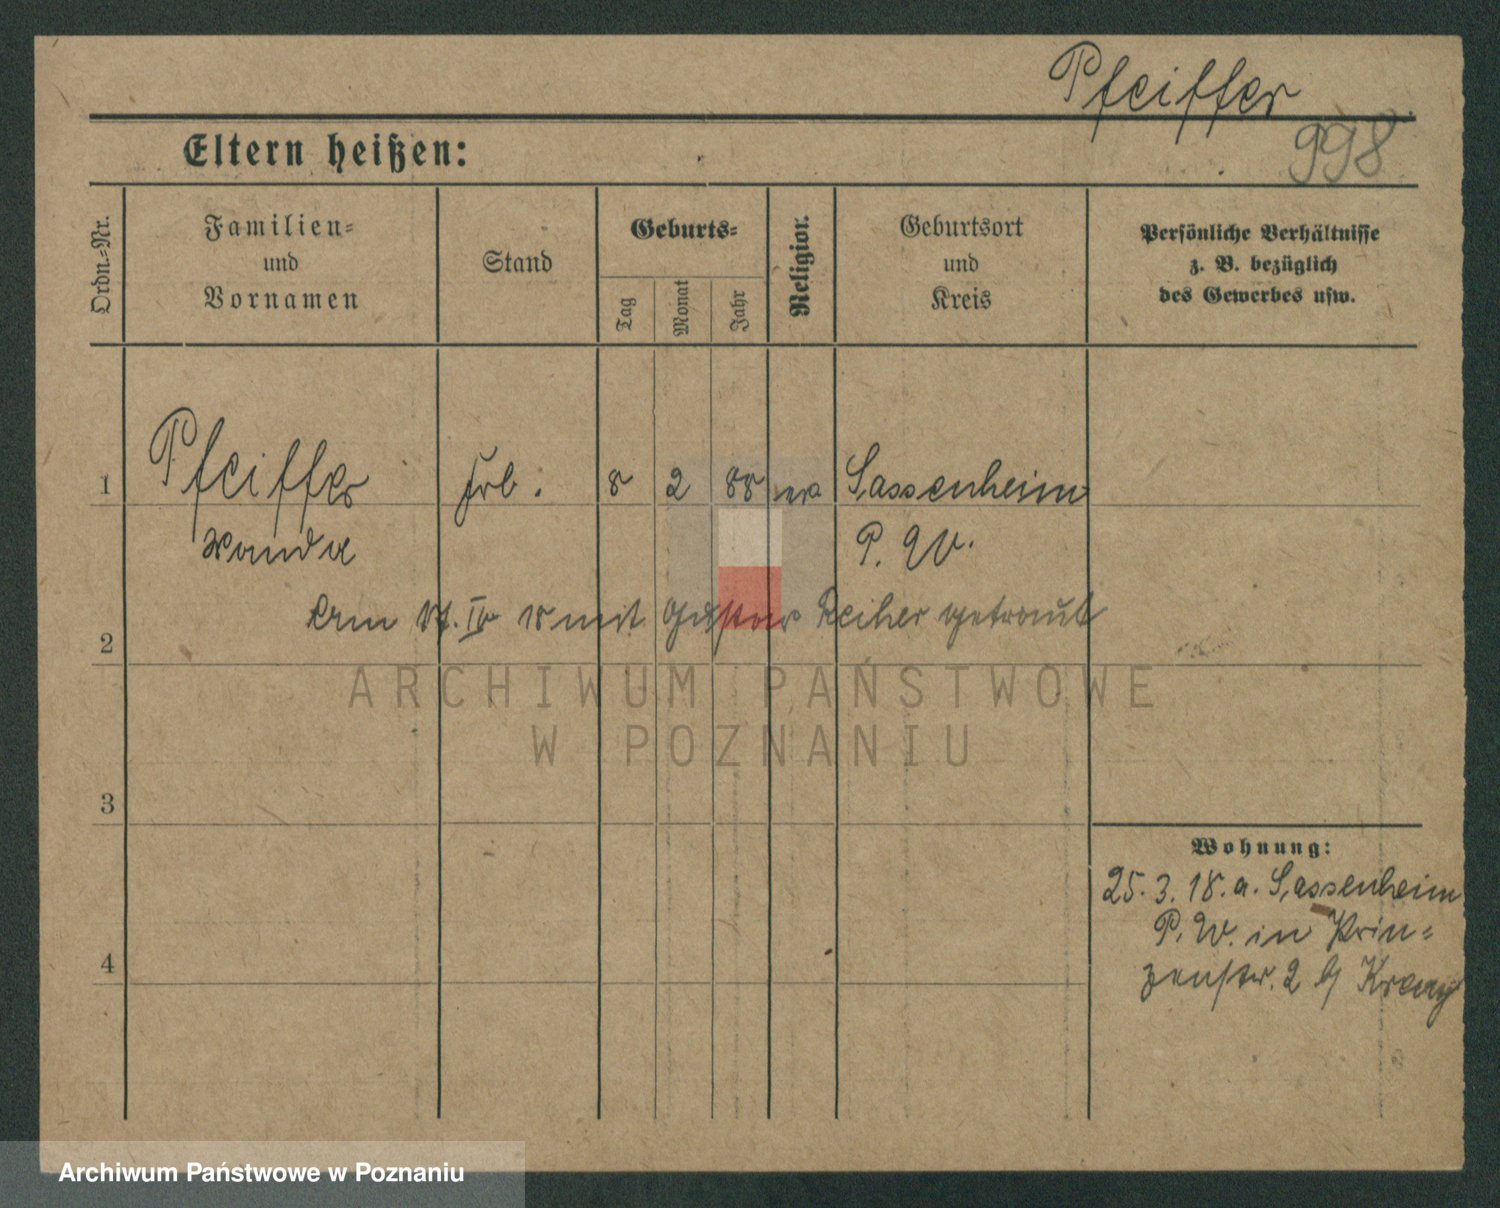 Pfeiffer
998
Eltern heißen:
Ordn.-Nr.
Familien-
und
Vornamen
Stand
Geburts-
Tag
Monat
Jahr
Religion.
Geburtsort
und
Kreis
Persönliche Verhältnisse
z. B. bezüglich
des Gewerbes usw.
1
Pfeiffer
Frl.
8
2
88
ev
Sassenheim
Wanda
P. W.
Am IV 18 mit Gustav Reiher getraut
2
ARCHIWUM PAŃSTWOWE
W POZNANIU
3
Wohnung:
25. 3. 18. a. Sassenheim
P. W. in Prin-
4
zenstr. 2 b/ Kray
Archiwum Państwowe w Poznaniu